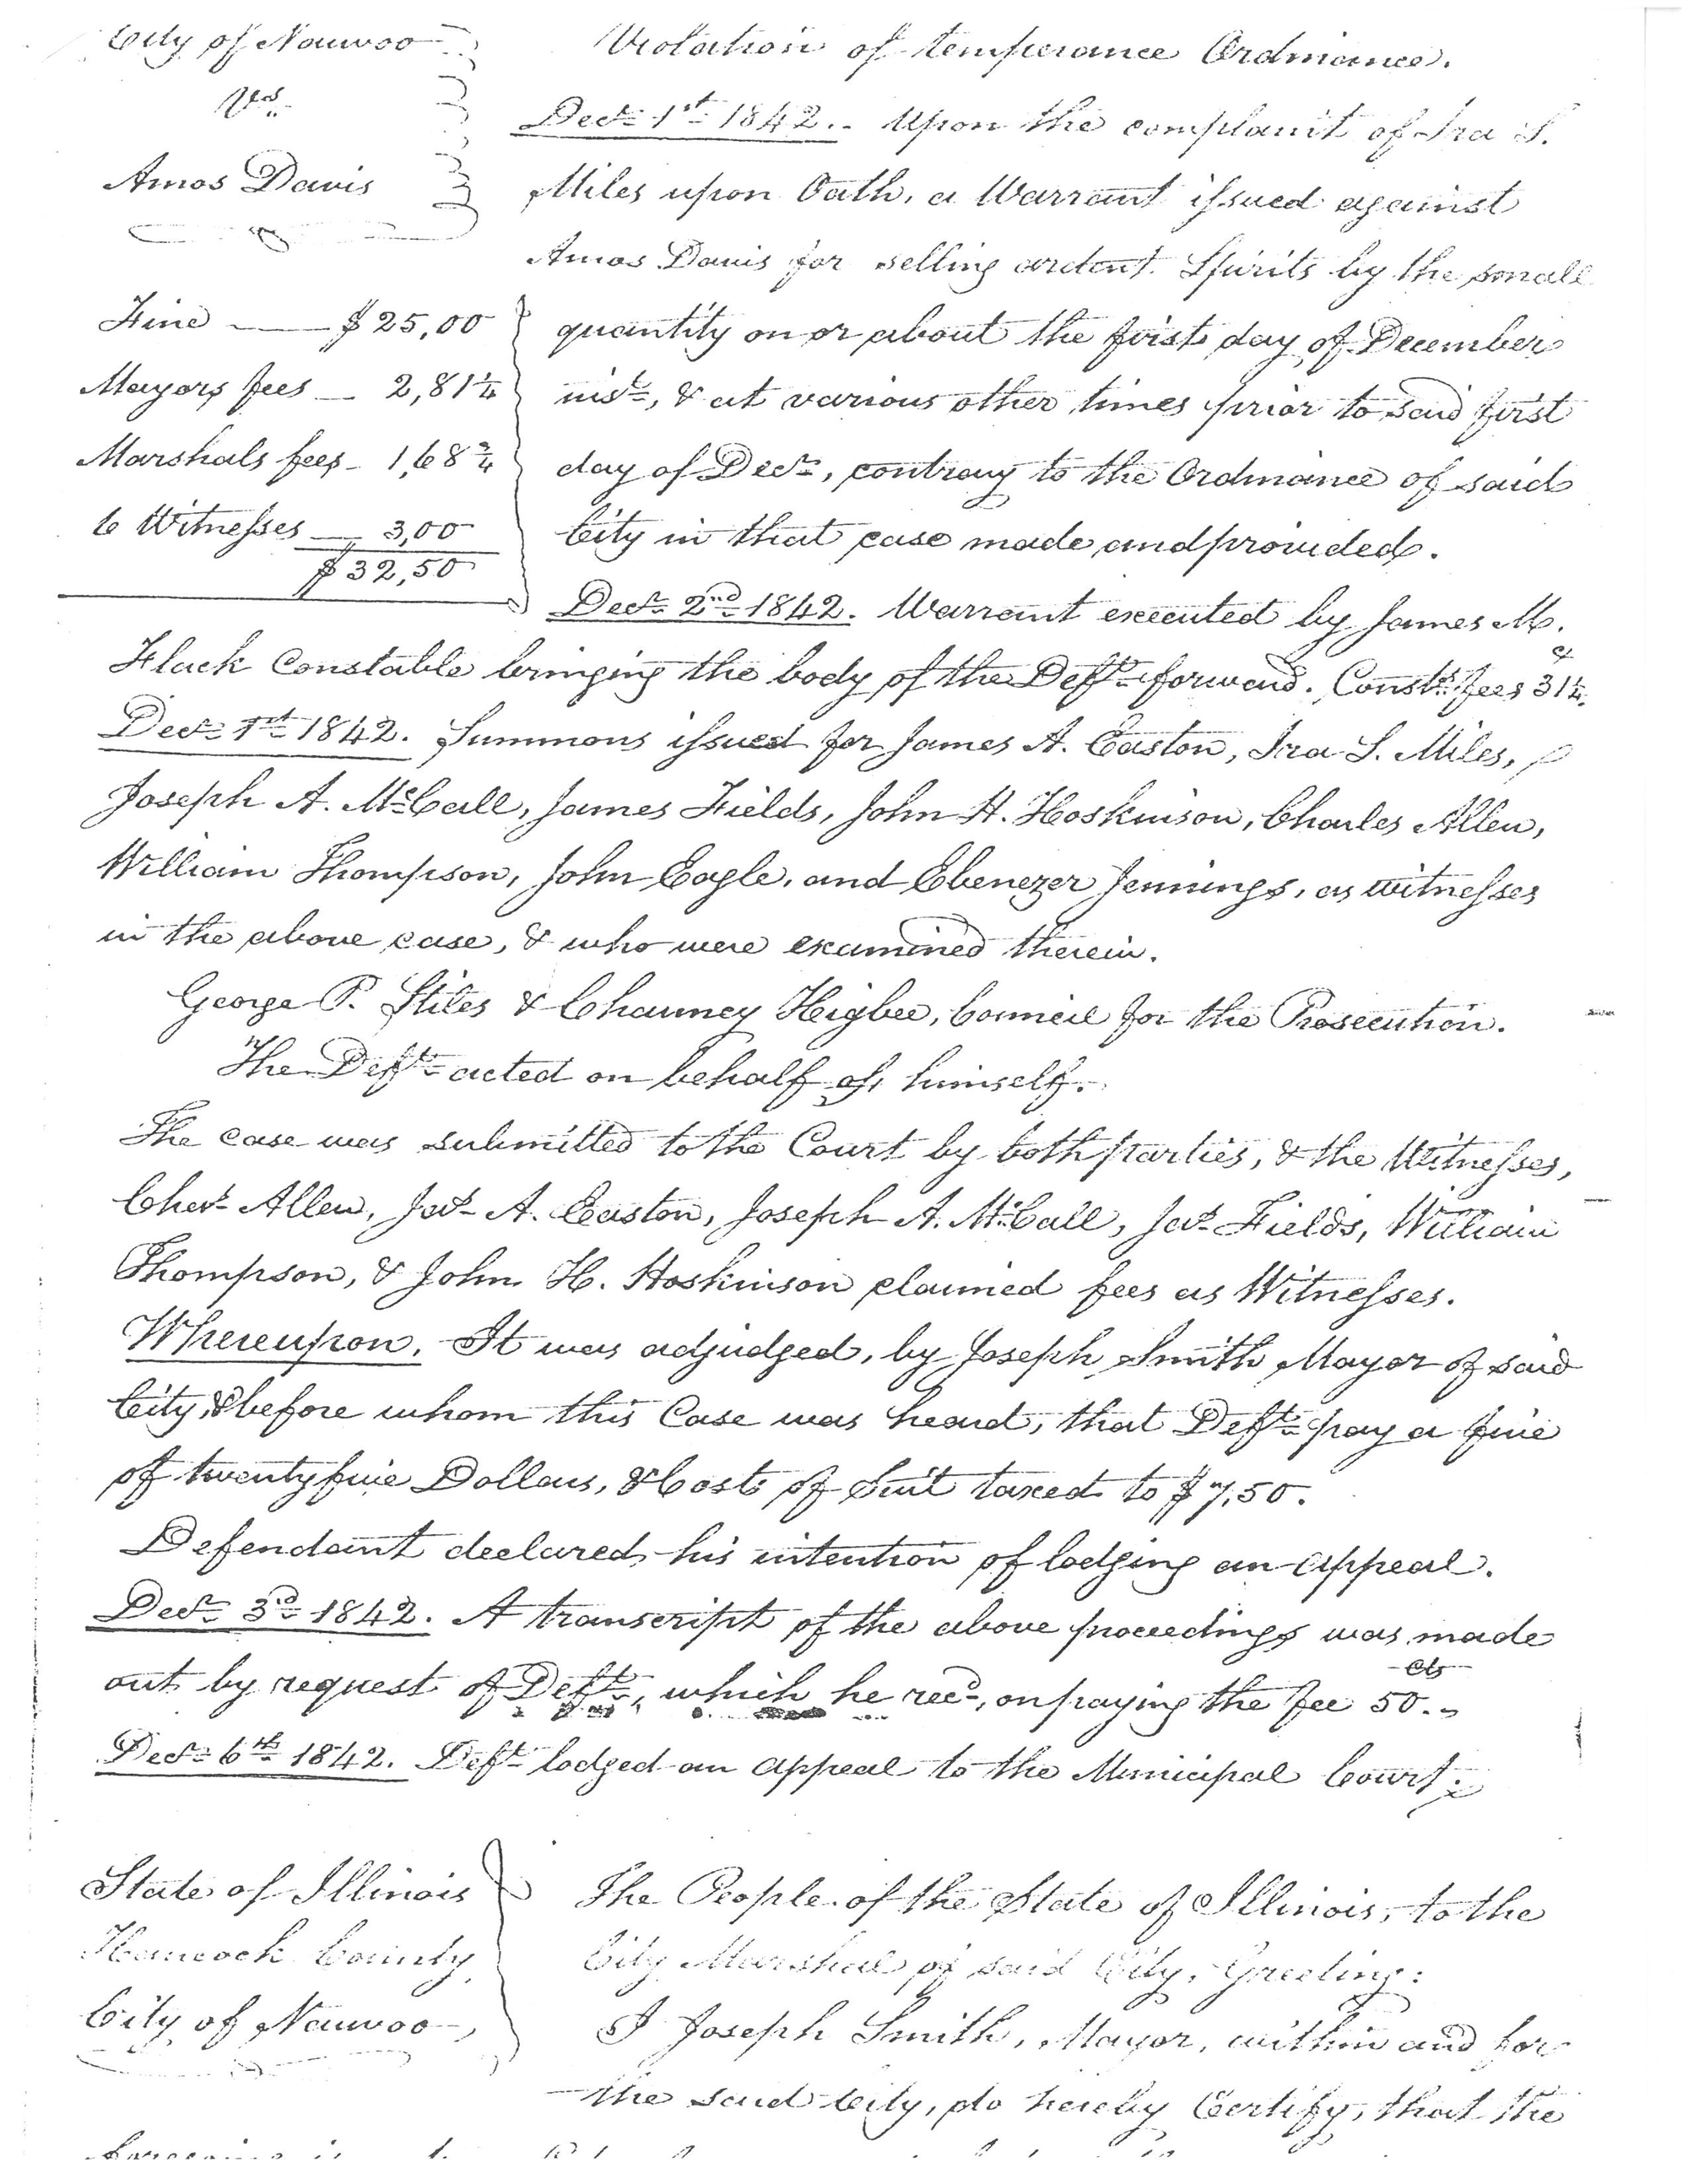 City of Nauvoo
vs.
Amos Davis
Fine — $25,00
Mayors fees — 2,81¼
Marshals fees - 1,68¾
6 Witnesses — 3,00
$32,50
Violation of temperance Ordinance.
Decr. 1st 1842. - Upon the complaint of Ira S.
Miles upon Oath, a Warrant issued against
Amos Davis for selling ardent Spirits by the small
quantity on or about the first day of December
inst., & at various other times prior to said first
day of Decr., contrary to the Ordinance of said
City in that case made and provided.
Decr. 2nd 1842. Warrant executed by James M.
Flack Constable bringing the body of the Deft. forward. Consts. fees 31¼ c
Decr. 1st 1842. Summons issued for James A. Easton, Ira S. Miles,
Joseph A. McCall, James Fields, John H. Hoskinson, Charles Allen,
William Thompson, John Eagle, and Ebenezer Jennings, as witnesses
in the above case, & who were examined therein.
George P. Stiles & Chauncy Higbee, Council for the Prosecution.
The Deft. acted on behalf of himself.
The case was submitted to the Court by both parties, & the Witnesses,
Chas. Allen, Jas. A. Easton, Joseph A. McCall, Jas. Fields, William
Thompson, & John H. Hoskinson claimed fees as Witnesses.
Whereupon, It was adjudged, by Joseph Smith Mayor of said
City, & before whom this Case was heard, that Deft. pay a fine
of twenty five Dollars, & Costs of Suit taxed to $7,50.
Defendant declared his intention of lodging an appeal.
Decr. 3rd 1842. A transcript of the above proceedings was made
out by request of Deft., which he recd., on paying the Fee 50 cts. -
Decr. 6th 1842. Deft. lodged an appeal to the Municipal Court.
State of Illinois
Hancock County
City of Nauvoo
The People of the State of Illinois, to the
City Marshal of said City, Greeting:
I Joseph Smith, Mayor, within and for
the said City, do hereby Certify, that the